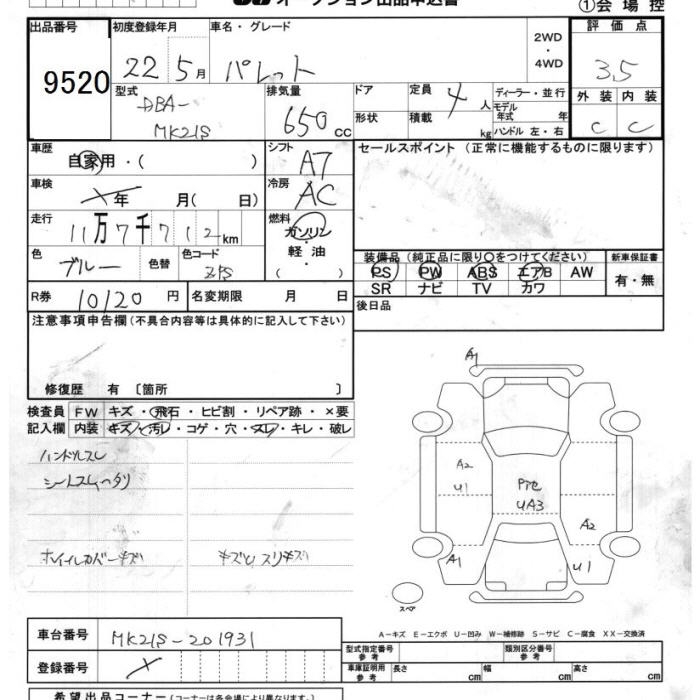 オークション出品申込書
①会場控
出品番号
9520
初度登録年月
22 5月
車名・グレード
パレット
2WD
・
4WD
評価点
3.5
外装 内装
C C
型式
DBA-
MK21S
排気量
650 cc
ドア
形状
定員
4人
積載
kg
ディーラー・並行
モデル
年式 年
ハンドル 左・右
車歴
自家用・( )
シフト
A7
セールスポイント(正常に機能するものに限ります)
車検
年 月(日)
冷房
AC
走行
11万7千712km
燃料
ガソリン
・
軽油
( )
色
ブルー
色替
色コード
ZJS
装備品(純正品に限り○をつけてください)
PS PW ABS エアB AW
SR ナビ TV カワ
新車保証書
有・無
R券
10120円
名変期限 月 日
後日品
注意事項申告欄(不具合内容等は具体的に記入して下さい)
修復歴 有〔箇所 〕
検査員
記入欄
FW キズ・飛石・ヒビ割・リペア跡・×要
内装 キズ・汚レ・コゲ・穴・スレ・キレ・破レ
ハンドルスレ
シートスレヘタリ
ホイールカバーキズ
キズUスリキズ
A1
A2
U1
UA3
A2
A1
U1
スペア
A-キズ E-エクボ U-凹み W-補修跡 S-サビ C-腐食 XX-交換済
車台番号
MK21S-201931
登録番号
型式指定番号
参考
類別区分番号
参考
車庫証明用
参考
長さ cm 幅 cm 高さ cm
希望出品コーナー(コーナーは各会場により異なります)